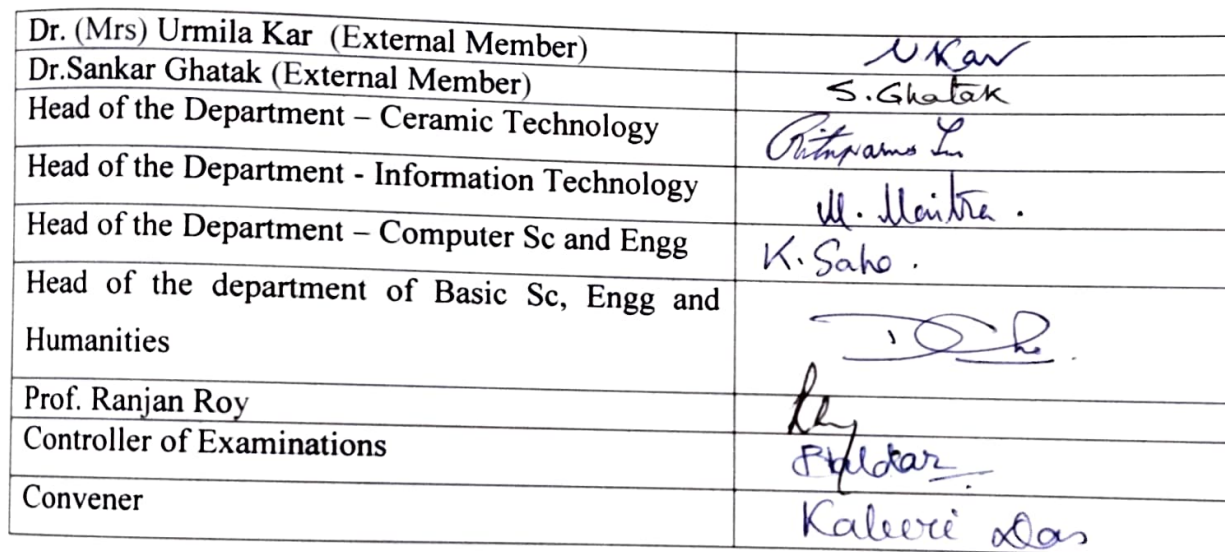 Dr. (Mrs) Urmila Kar (External Member) U Kar
Dr.Sankar Ghatak (External Member) S. Ghatak
Head of the Department – Ceramic Technology
Head of the Department - Information Technology M. Maitra .
Head of the Department – Computer Sc and Engg K. Saho .
Head of the department of Basic Sc, Engg and
Humanities
Prof. Ranjan Roy
Controller of Examinations
Convener Das